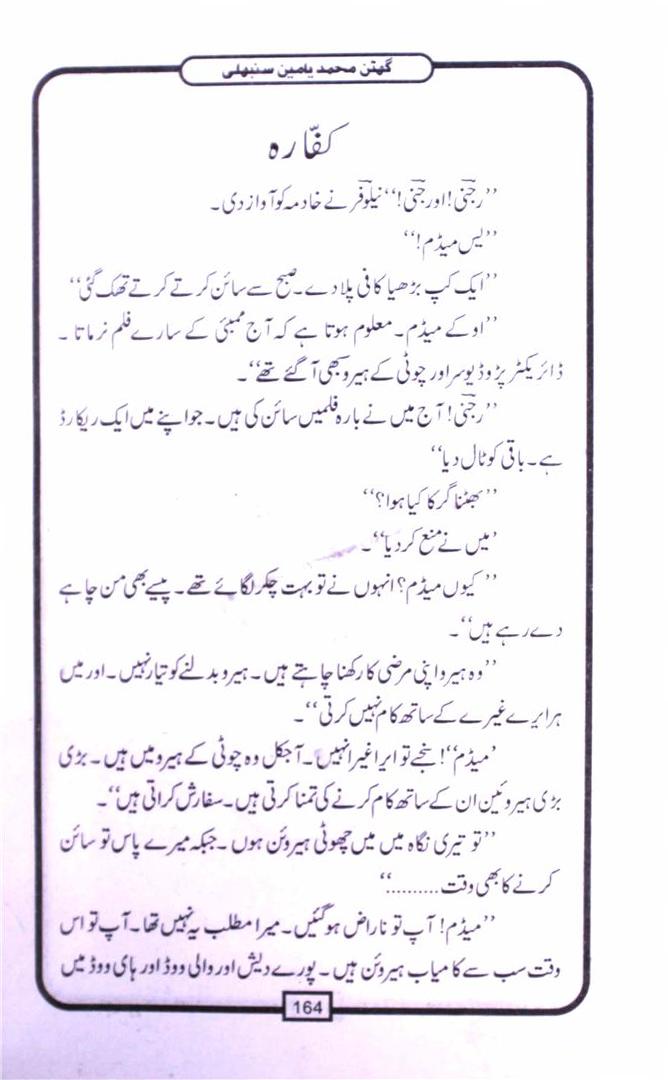 گھٹن محمد یامین سنبھلی
کفّارہ
’’رجنی! اور جنی!‘‘ نیلوفر نے خادمہ کو آواز دی۔
’’یس میڈم!‘‘
’’ایک کپ بڑھیا کافی پلا دے۔ صبح سے سائن کرتے کرتے تھک گئی‘‘
’’اوکے میڈم۔ معلوم ہوتا ہے کہ آج ممبئی کے سارے فلم نرماتا ۔
ڈائریکٹر پڑوڈیوسر اور چوٹی کے ہیرو بھی آگئے تھے‘‘۔
’’رجنی! آج میں نے بارہ فلمیں سائن کی ہیں۔ جو اپنے میں ایک ریکارڈ
ہے۔ باقی کو ٹال دیا‘‘
’’بھٹناگر کا کیا ہوا؟‘‘
’میں نے منع کر دیا‘‘۔
’’کیوں میڈم؟ انہوں نے تو بہت چکر لگائے تھے۔ پیسے بھی من چاہے
دے رہے ہیں‘‘۔
’’وہ ہیرو اپنی مرضی کا رکھنا چاہتے ہیں۔ ہیرو بدلنے کو تیار نہیں۔ اور میں
ہر ایرے غیرے کے ساتھ کام نہیں کرتی‘‘۔
’میڈم‘‘! سنجے تو ایرا غیرا نہیں۔ آجکل وہ چوٹی کے ہیرو میں ہیں۔ بڑی
بڑی ہیروئین ان کے ساتھ کام کرنے کی تمنا کرتی ہیں۔ سفارش کراتی ہیں‘‘۔
’’تو تیری نگاہ میں میں چھوٹی ہیروئن ہوں۔ جبکہ میرے پاس تو سائن
کرنے کا بھی وقت ..........‘‘
’’میڈم! آپ تو ناراض ہو گئیں۔ میرا مطلب یہ نہیں تھا۔ آپ تو اس
وقت سب سے کامیاب ہیروئن ہیں۔ پورے دیش اور والی ووڈ اور ہای ووڈ میں
164